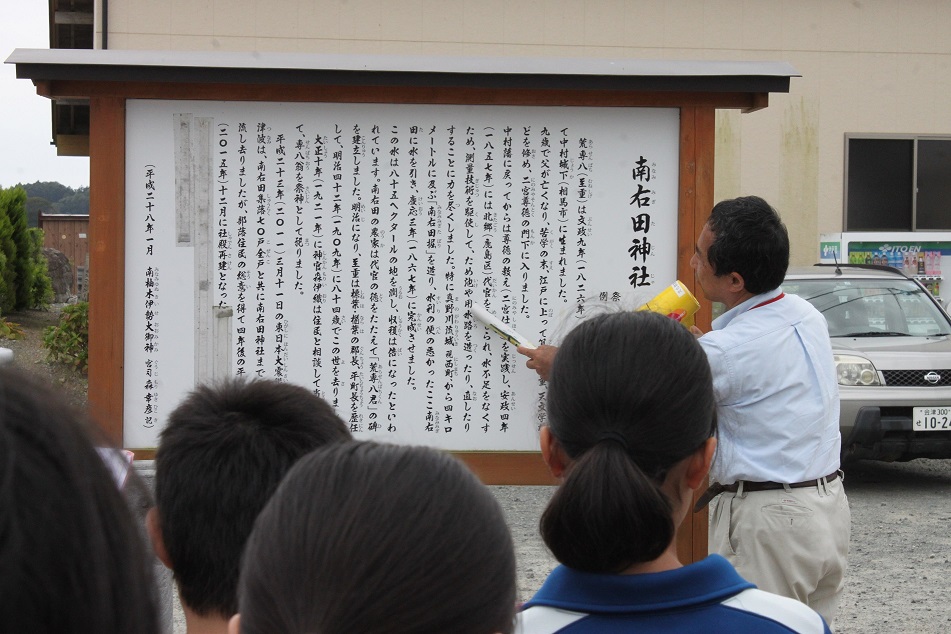 南右田神社
祭
例
荒専八(至重)は文政九年(一八二六年
て中村城下(相馬市)に生まれました。
九歳で父が亡くなり、苦学の末、江戸に上って
どを修め、二宮尊徳の門下に入りました。
中村藩に戻ってからは尊徳の教え「二宮仕法」を実践し、安政四年
(一八五七年)には北郷(鹿島区)代官を命ぜられ、水不足をなくす
ため、測量技術を駆使して、ため池や用水路を造ったり、直したり
することに力を尽くしました。特に真野川流域
メートルに及ぶ「南右田堀」を造り、水利の便の悪かったここ南右
田に水を引き、慶応三年(一八六七年)に完成させました。
この水は八十五ヘクタールの地を潤し、収穫は倍になったといわ
れています。南右田の農家は代官の徳をたたえて「荒専八君」の碑
を建立しました。明治になり、至重は標葉・楢葉の郡長、平町長を歴任
して、明治四十二年(一九〇九年)に八十四歳でこの世を去りま
大正十年(一九二一年)に神官森伊織は住民と相談して
て、専八翁を祭神として祀りました。
平成二十三年(二〇一一)三月十一日の東日本大震
津波は、南右田集落70戸全戸と共に南右田神社ま
流し去りましたが、部落住民の総意を得て四年後の平
(二〇一五年)十二月に社殿再建となった
(平成二八年一月 南柚木伊勢大御神 宮司森幸彦記)
ITOEN
NISSAN
会津 300
せ 10-24